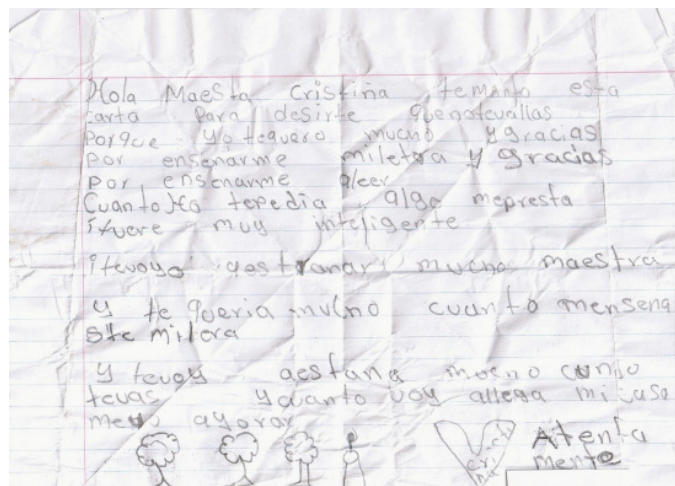 Hola Maesta Cristiña temanto esta
carta para desirte quenotevallas
Porque yo tequero mucho y gracias
por ensenarme miletra y gracias
por ensenarme aleer
Cuanto yo tepedia algo mepresta
ifuere muy inteligente
itevoyo aestranar mucho maestra
y te queria mucho cuanto mensena
ste miletra
y tevoy aestana mucho cunto
tevas ycuanto voy allega mi casa
mevo ayorar
Atenta
mente